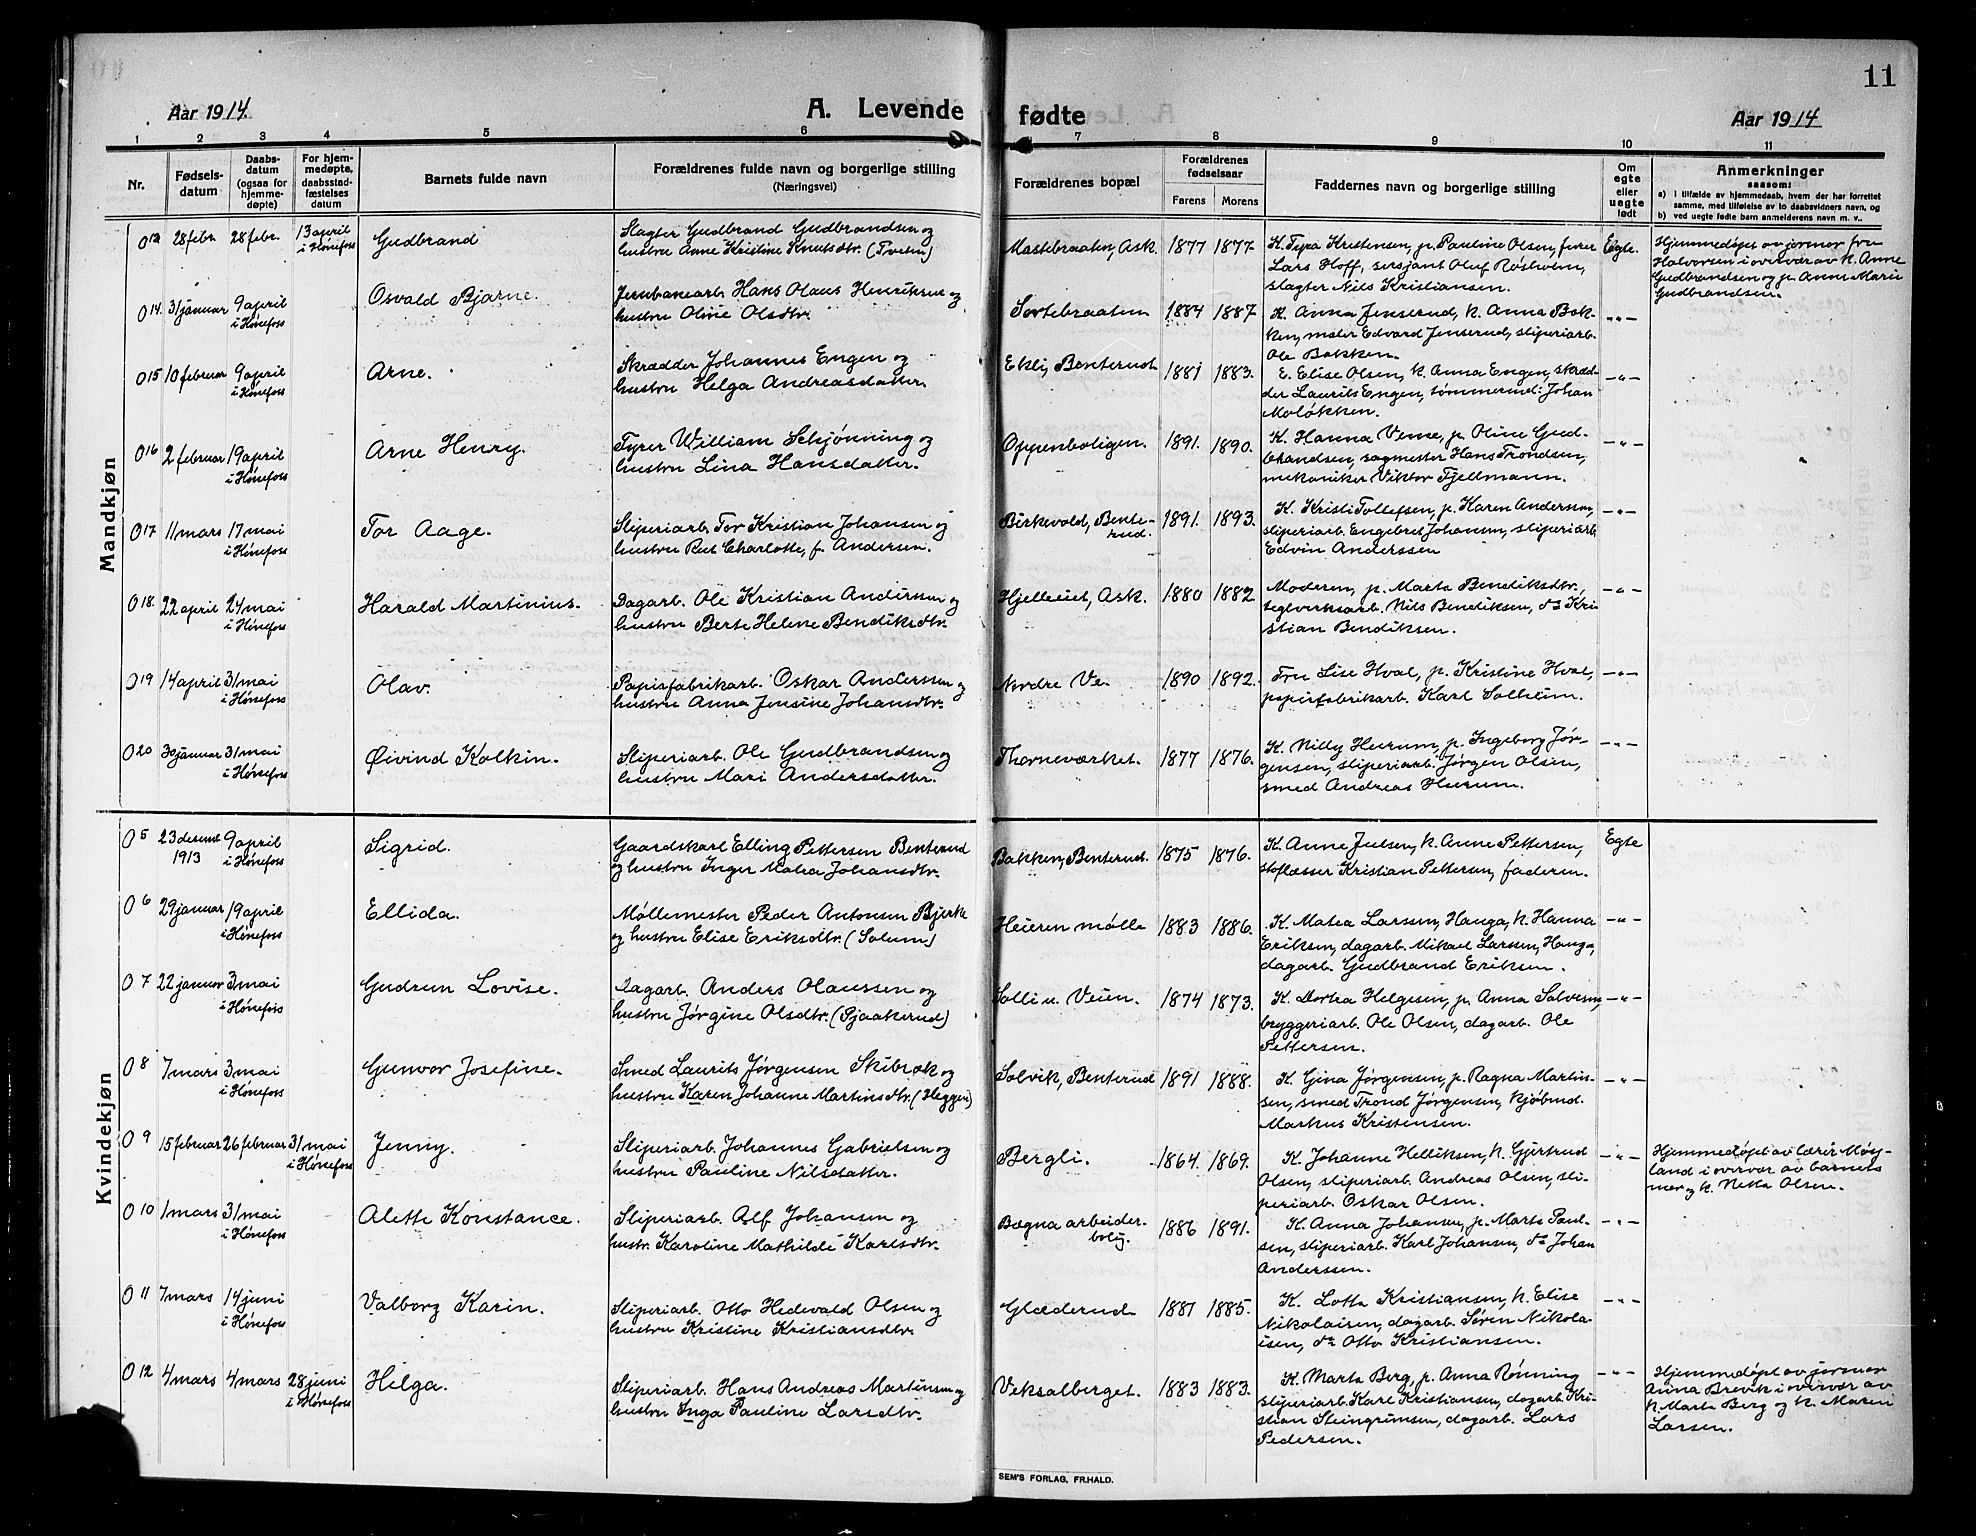 11
Aar 1914.
A. Levende
fødte
Aar 1914
1 2 3 4 5 6 7 8 9 10 11
Nr.
Fødsels-
datum
Daabs-
datum
(ogsaa for
hjemme-
døpte)
For hjem-
medøpte,
daabsstad-
fæstelses
datum
Barnets fulde navn
Forældrenes fulde navn og borgerlige stilling
(Næringsvei)
Forældrenes bopæl
Forældrenes
fødselsaar
Farens Morens
Faddernes navn og borgerlige stilling
Om
egte
eller
uegte
født
Anmerkninger
saasom:
a) i tilfælde av hjemmedaab, hvem der har forrettet
samme, med tilføielse av to daabsvidners navn, og
b) ved uegte fødte barn anmelderens navn m. v..
Mandkjøn
13 28 febr. 28 febr. 13 april
i Hønefoss
Gudbrand
Slagter Gudbrand Gudbrandsen og
hustru Anne Kristine Knutsdtr.
Mastebraaten, Ask. 1877 1877
K. Tyra Kristensen, p. Pauline Olsen, furer
Lars Hoff, sersjant Oluf Røsholm,
slagter Nils Kristiansen.
Egte.
Hjemmedøpt av jormor fru
Halvorsen i overvær av k. Anne
Gudbrandsen og p. Anne Marie
Gudbrandsen.
O 14. 31 januar 9 april
i Hønefoss
Osvald Bjarne.
Jernbanearb. Hans Olaus Henriksen og
hustru Oline Olsdtr.
Sortebraaten 1884 1887
K. Anna Jenserud, k. Anna Bak-
ken, maler Edvard Jenserud, sliperiarb.
Ole Bakken.
-"-
O 15 10 februar 9 april
i Hønefoss
Arne.
Skrædder Johannes Engen og
hustru Helga Andreasdatter.
Ekli, Benterud. 1881 1883.
E. Elise Olsen, k. Anna Engen, skræd-
der Laurits Engen, tømmermd. Johan
Moløkken.
-"-
O 16 2 februar 19 april
i Hønefoss
Arne Henry.
Fyrer William Schjønning og
hustru Lina Hansdatter.
Oppenboligen. 1891. 1890.
K. Hanna Veme, p. Oline Gud-
brandsen, sagmester Hans Trondsen,
mekaniker Viktor Fjellmann.
-"-
O 17 11 mars 17 mai
i Hønefoss
Tor Aage.
Sliperiarb. Tor Kristian Johansen og
hustru Rut Charlotte, f. Andersen.
Birkevold, Bente-
rud. 1891. 1893.
K. Kristi Tollefsen, p. Karen Andersen,
sliperiarb. Engebret Johansen, sliperiarb.
Edvin Anderssen
-"-
O 18. 22 april 24 mai
i Hønefoss
Harald Martinius.
Dagarb. Ole Kristian Andersen og
hustru Berte Helene Bendiksdtr.
Hjelleiet, Ask. 1880 1882
Moderen, p. Marta Bendiksdtr.,
teglverksarb. Nils Bendiksen, do Kri-
stian Bendiksen.
-"-
O 19 14 april 31 mai
i Hønefoss
Olav.
Papirfabrikarb. Oskar Anderssen og
hustru Anna Jensine Johansdtr.
Nordre Ve. 1890 1892.
Fru Lise Hval, p. Kristine Hval,
papirfabrikarb. Karl Solheim.
-"-
O 20 30 januar 31 mai
i Hønefoss
Øivind Kolkin.
Sliperiarb. Ole Gudbrandsen og
hustru Mari Andersdatter.
Thorneværket. 1877 1876.
K. Nilly Heirum, p. Ingeborg Jør-
gensen, sliperiarb. Jørgen Olsen,
smed Andreas Heirum.
-"-
Kvindekjøn
O 5 23 desemb. 9 april
1913 i Hønefoss
Sigrid.
Gaardskarl Elling Pettersen Benterud
og hustru Inger Malia Johansdtr.
Bakken, Benterud. 1875 1876.
K. Anne Juelsen, k. Anne Pettersen,
stoflæsser Kristian Pettersen, faderen.
Egte
O 6 29 januar 19 april
i Hønefoss
Ellida.
Møllemester Peder Antonsen Bjerke
og hustru Elise Eriksdtr. (Solum)
Heieren mølle 1883 1886.
K. Matea Larsen, Hauga, k. Hanna
Eriksen, dagarb. Mikael Larsen, Hauga,
dagarb. Gudbrand Eriksen.
-"-
O 7 22 januar 3 mai
i Hønefoss
Gudrun Lovise.
Dagarb. Anders Olaussen og
hustru Jørgine Olsdtr. (Pjaakerud)
Solli u. Veien. 1874 1873.
K. Dortea Helgesen, p. Anna Salvesen,
bryggeriarb. Ole Olsen, dagarb. Ole
Pettersen.
-"-
O 8 7 mars 3 mai
i Hønefoss
Gunvor Josefine.
Smed Laurits Jørgensen Skibræk og
hustru Karen Johanne Martinsdtr. (Heggen)
Solvik, Benterud 1891 1888.
K. Gina Jørgensen, p. Ragna Martin-
sen, smed Trond Jørgensen, kjøbmd.
Markus Kristensen.
-"-
O 9 15 februar 26 februar 31 mai
i Hønefoss
Jenny.
Sliperiarb. Johannes Gabrielsen og
hustru Pauline Nilsdatter.
Bergli. 1864. 1869.
K. Johanne Helliksen, k. Gjertrud
Olsen, sliperiarb. Andreas Olsen, sli-
periarb. Oskar Olsen.
-"-
Hjemmedøpt av lærer Møy-
land i overvær av barnets
mor og k. Netta Olsen.
O 10 1 mars 31 mai
i Hønefoss
Alette Konstance.
Sliperiarb. Alf Johansen og
hustr. Karoline Mathilde Karlsdtr.
Bægna arbeider-
bolig. 1886 1891.
K. Anna Johansen, p. Marte Paul-
sen, sliperiarb. Karl Johansen, do Johan
Anderssen.
-"-
O 11 7 mars 14 juni
i Hønefoss
Valborg Karin.
Sliperiarb. Otto Hedevald Olsen og
hustru Kristine Kristiansdtr.
Glæderud 1887 1885.
K. Lotta Kristiansen, k. Elise
Nikolaisen, dagarb. Søren Nikola-
isen, do Otto Kristiansen.
-"-
O 12 4 mars 4 mars 28 juni
i Hønefoss
Helga.
Sliperiarb. Hans Andreas Martinsen og
hustru Inga Pauline Larsdtr.
Veksalberget. 1883 1883.
K. Marta Berg, p. Anna Rønning
sliperiarb. Karl Kristiansen, dagarb. Kri-
stian Steingrimsen, dagarb. Lars
Pedersen.
-"-
Hjemmedøpt av jormor
Anna Brevik i overvær av
k. Marta Berg og k. Maren
Larsen.
SEM'S FORLAG, FR.HALD.